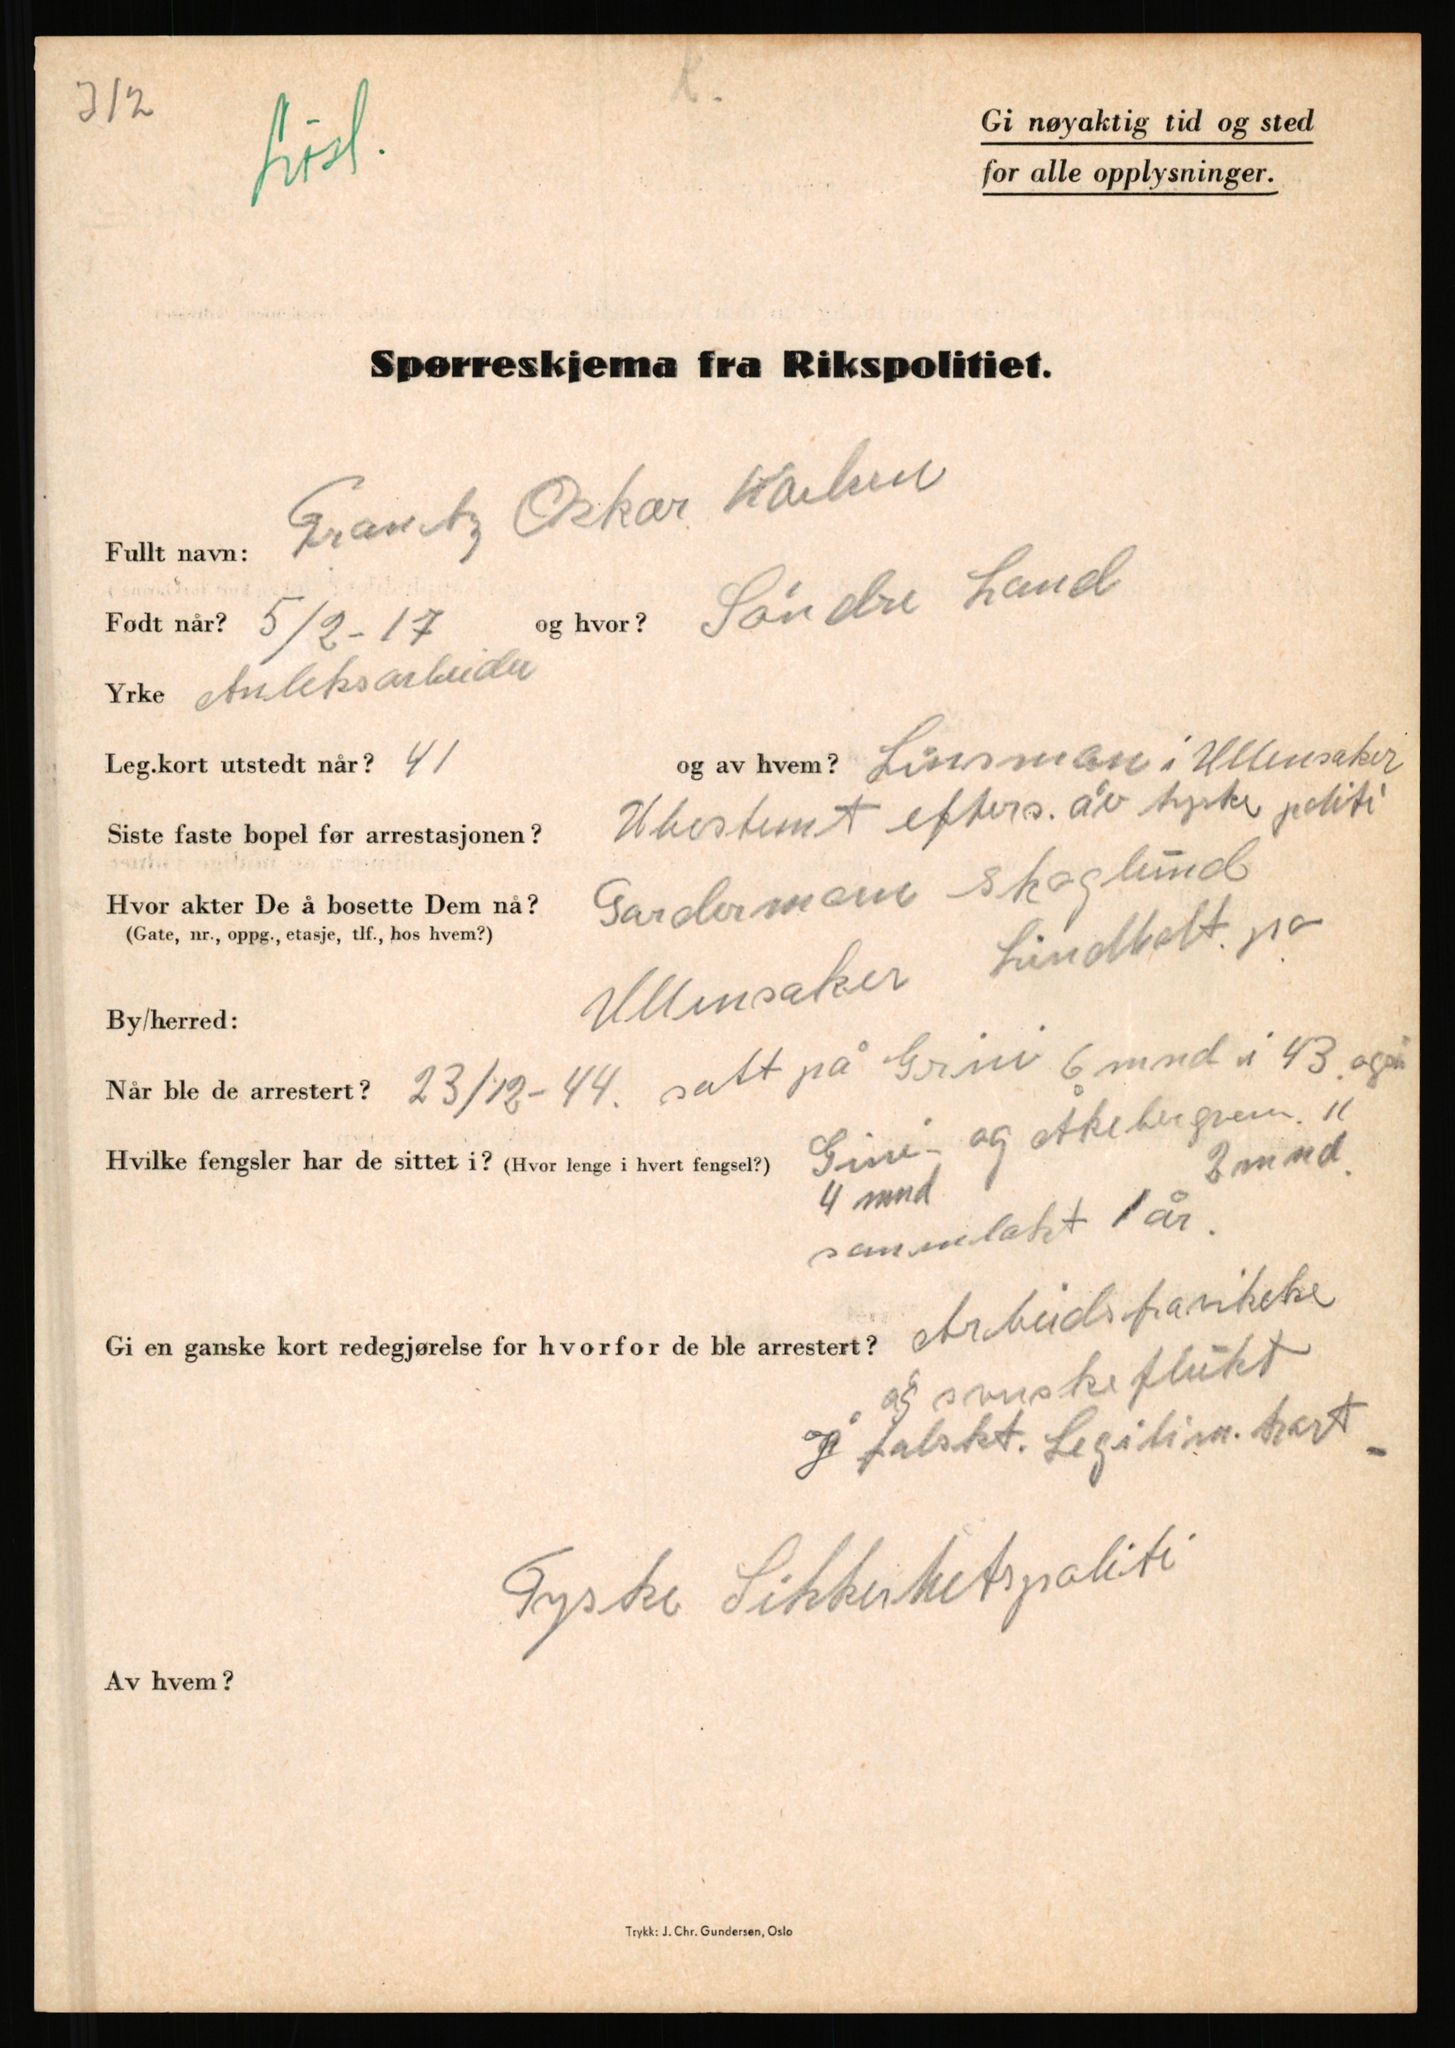 312
Løsl.
K.
Gi nøyaktig tid og sted
for alle opplysninger.
Spørreskjema fra Rikspolitiet.
Fullt navn: Frantz Oskar Karlsen
Født når? 5/2-17 og hvor? Söndre Land
Yrke Anleksarbeider
Leg.kort utstedt når? 41 og av hvem? Linsman i Ullensaker
Siste faste bopel før arrestasjonen? Ubestemt efters. av tyske politi
Hvor akter De å bosette Dem nå? Gardermoen Skoglund
(Gate, nr., oppg., etasje, tlf., hos hvem?)
By/herred: Ullensaker
Når ble de arrestert? 23/12-44. satt på Grini 6 mnd i 43. også
Hvilke fengsler har de sittet i? (Hvor lenge i hvert fengsel?) Grini- og Åkebergveien.
4 mnd 2 mnd.
sammlakt 1 år.
Gi en ganske kort redegjørelse for hvorfor de ble arrestert? Arbeidsfravikeke
og svenskeflukt
og falskt. Legitim. kart-
Tyske Sikkerhetspoliti
Av hvem?
Trykk: J. Chr. Gundersen, Oslo